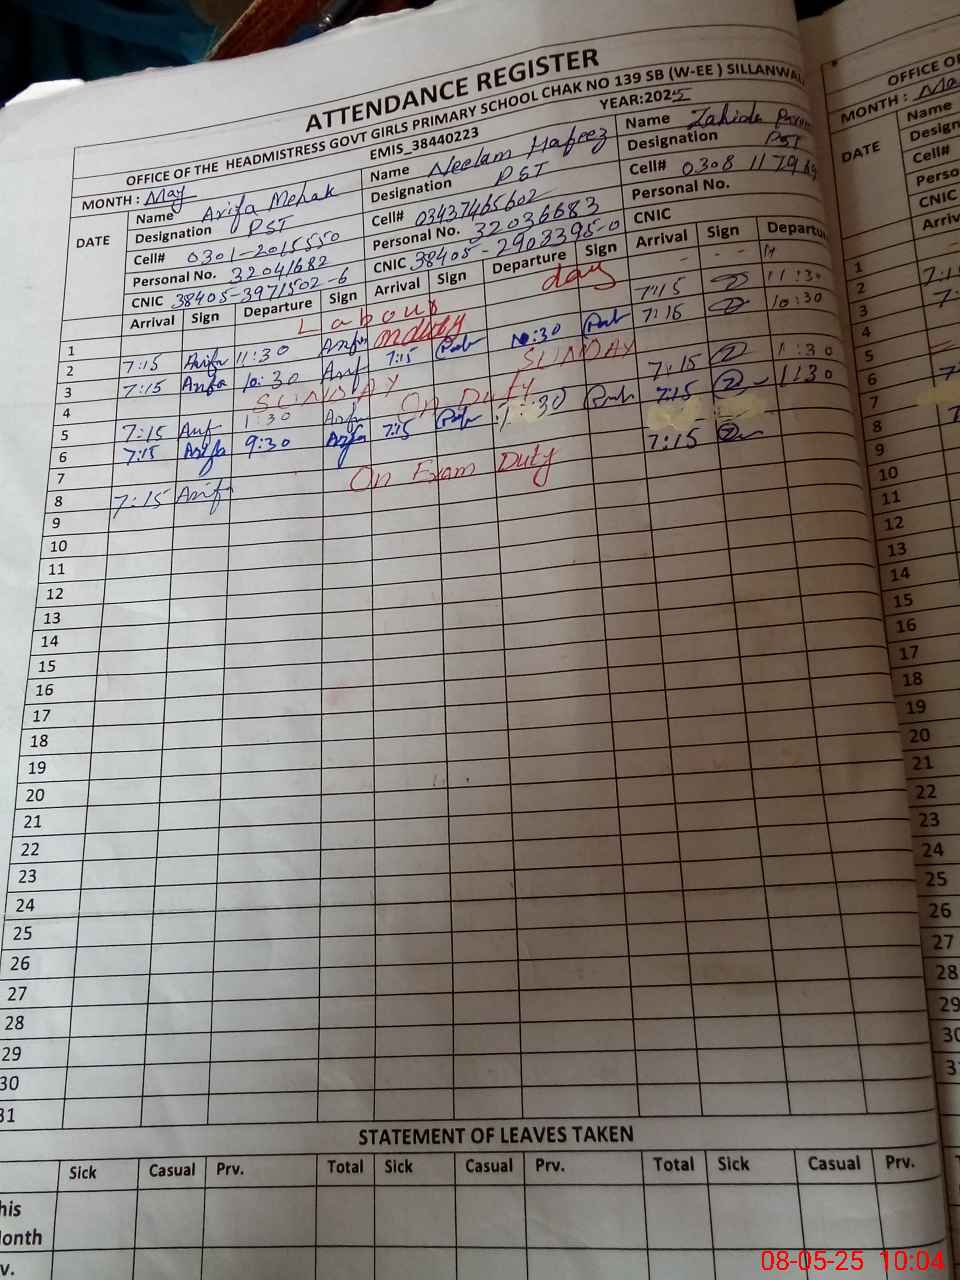 ATTENDANCE REGISTER
OFFICE OF THE HEADMISTRESS GOVT GIRLS PRIMARY SCHOOL CHAK NO 139 SB (W-EE ) SILLANWAL
EMIS_38440223 YEAR:2025
MONTH : May
DATE
Name Arifa Mehak
Designation PST
Cell# 0301-2015550
Personal No. 32041682
CNIC 38405-3971502-6
Arrival Sign Departure Sign
Name Neelam Hafeez
Designation PST
Cell# 03437465602
Personal No. 32036683
CNIC 38405-2903395-0
Arrival Sign Departure Sign
Name Zahida
Designation PST
Cell# 0308 1179
Personal No.
CNIC
Arrival Sign Departure
1 Labour day
2 7:15 Arifa 11:30 Arifa 7:15 11:30
3 7:15 Arifa 10:30 Arif 7:15 10:30 7:15 10:30
4 SUNDAY SUNDAY
5 7:15 Arif 1:30 Arifa On Duty 7:15 1:30
6 7:15 Arifa 9:30 Arifa 7:15 :30 7:15 1:30
7
8 7:15 Arifa On Exam Duty 7:15
9
10
11
12
13
14
15
16
17
18
19
20
21
22
23
24
25
26
27
28
29
30
31
STATEMENT OF LEAVES TAKEN
Sick Casual Prv. Total Sick Casual Prv. Total Sick Casual Prv.
his
onth
v.
OFFICE OF
MONTH : Ma
DATE
Name
Design
Cell#
Perso
CNIC
Arriv
1
2
3
4
5
6
7
8
9
10
11
12
13
14
15
16
17
18
19
20
21
22
23
24
25
26
27
28
29
30
3
08-05-25 10:04